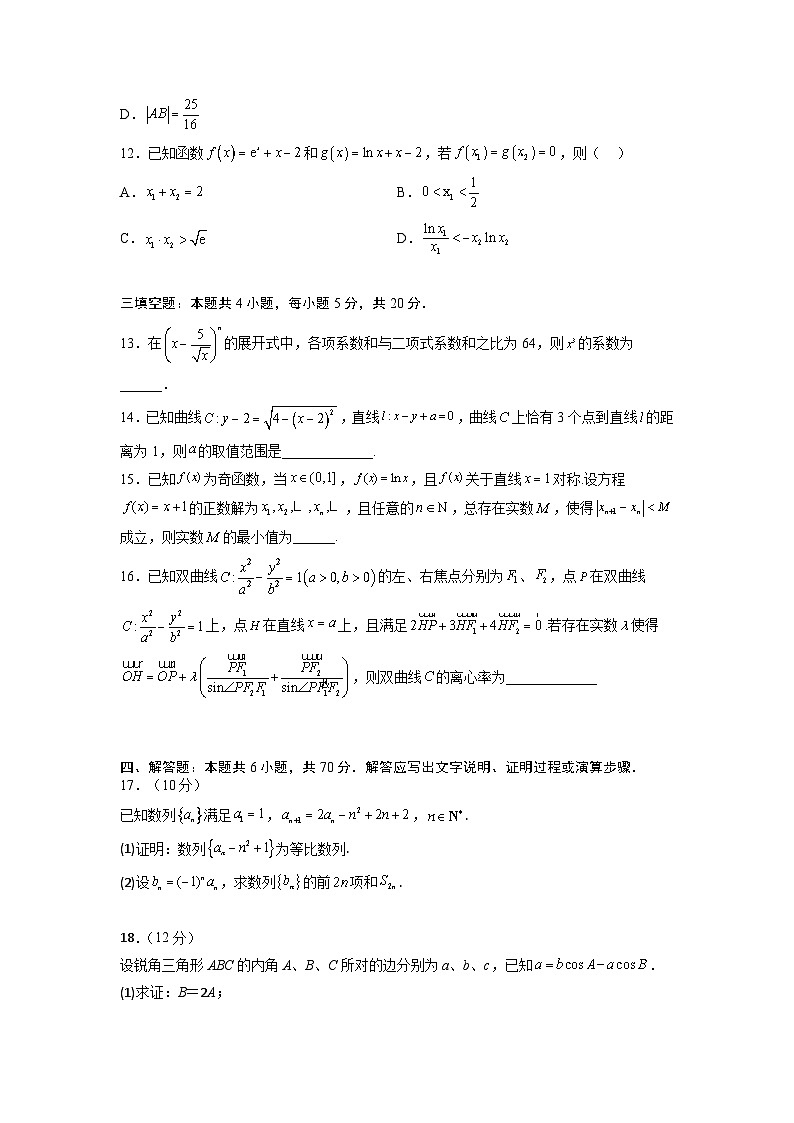 D. |AB| = 25/16
12.已知函数 f(x) = eˣ + x − 2 和 g(x) = ln x + x − 2，若 f(x₁) = g(x₂) = 0，则（ ）
A. x₁ + x₂ = 2 B. 0 < x₁ < 1/2
C. x₁ · x₂ > √e D. ln x₁/x₁ < −x₂ ln x₂
三填空题：本题共 4 小题，每小题 5 分，共 20 分．
13.在 (x − 5/√x)ⁿ 的展开式中，各项系数和与二项式系数和之比为 64，则 x³ 的系数为
______．
14.已知曲线 C : y − 2 = √(4 − (x − 2)²)，直线 l : x − y + a = 0，曲线 C 上恰有 3 个点到直线 l 的距
离为 1，则 a 的取值范围是_____________.
15.已知 f(x) 为奇函数，当 x ∈ (0,1]，f(x) = ln x，且 f(x) 关于直线 x = 1 对称.设方程
f(x) = x + 1 的正数解为 x₁, x₂, L , xₙ, L ，且任意的 n ∈ N，总存在实数 M，使得 |xₙ₊₁ − xₙ| < M
成立，则实数 M 的最小值为______.
16.已知双曲线 C : x²/a² − y²/b² = 1(a > 0, b > 0) 的左、右焦点分别为 F₁、F₂，点 P 在双曲线
C : x²/a² − y²/b² = 1 上，点 H 在直线 x = a 上，且满足 2HP + 3HF₁ + 4HF₂ = 0.若存在实数 λ 使得
OH = OP + λ(PF₁/sin∠PF₂F₁ + PF₂/sin∠PF₁F₂)，则双曲线 C 的离心率为_____________
四、解答题：本题共 6 小题，共 70 分．解答应写出文字说明、证明过程或演算步骤．
17.（10 分）
已知数列{aₙ}满足 a₁ = 1，aₙ₊₁ = 2aₙ − n² + 2n + 2，n ∈ N*.
(1)证明：数列{aₙ − n² + 1}为等比数列.
(2)设 bₙ = (−1)ⁿ aₙ，求数列{bₙ}的前 2n 项和 S₂ₙ.
18.（12 分）
设锐角三角形 ABC 的内角 A、B、C 所对的边分别为 a、b、c，已知 a = b cos A − a cos B．
(1)求证：B＝2A；